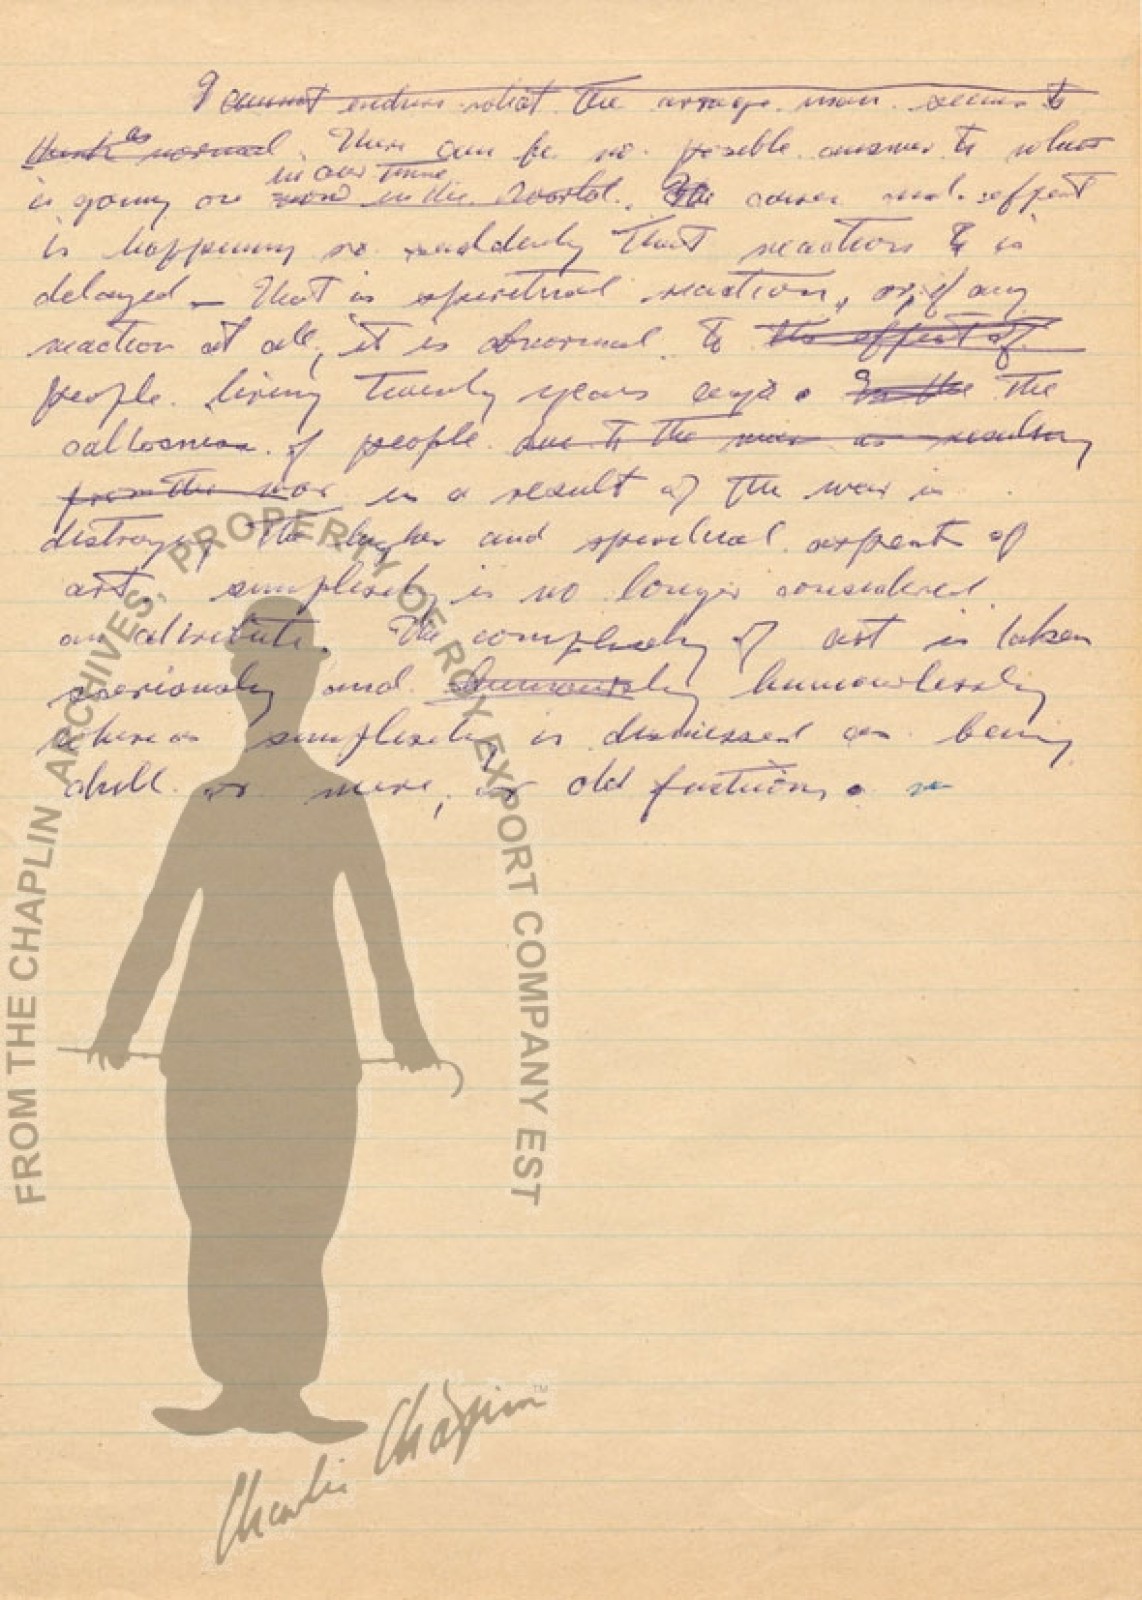 I cannot endure what the average man seems to
think as normal. There can be no posible answer to what
in our time
is going on now in the World. The cause and effect
is happening so suddenly that reaction to is
delayed – that is spiritual reaction, or, if any
reaction at all, it is abnormal to the effect of
people living twenty years ago. In the The
callosness of people due to the war as resulting
from the war is a result of the war is
distroying the higher and spiritual aspects of
art. simplesity is no longer considered
an atribute. The complexity of art is taken
seriously and humourlessly
whereas simplesity is dismissed as being
dull or mere, or old fashion.
FROM THE CHAPLIN ARCHIVES, PROPERTY OF ROY EXPORT COMPANY EST
Charlie Chaplin™